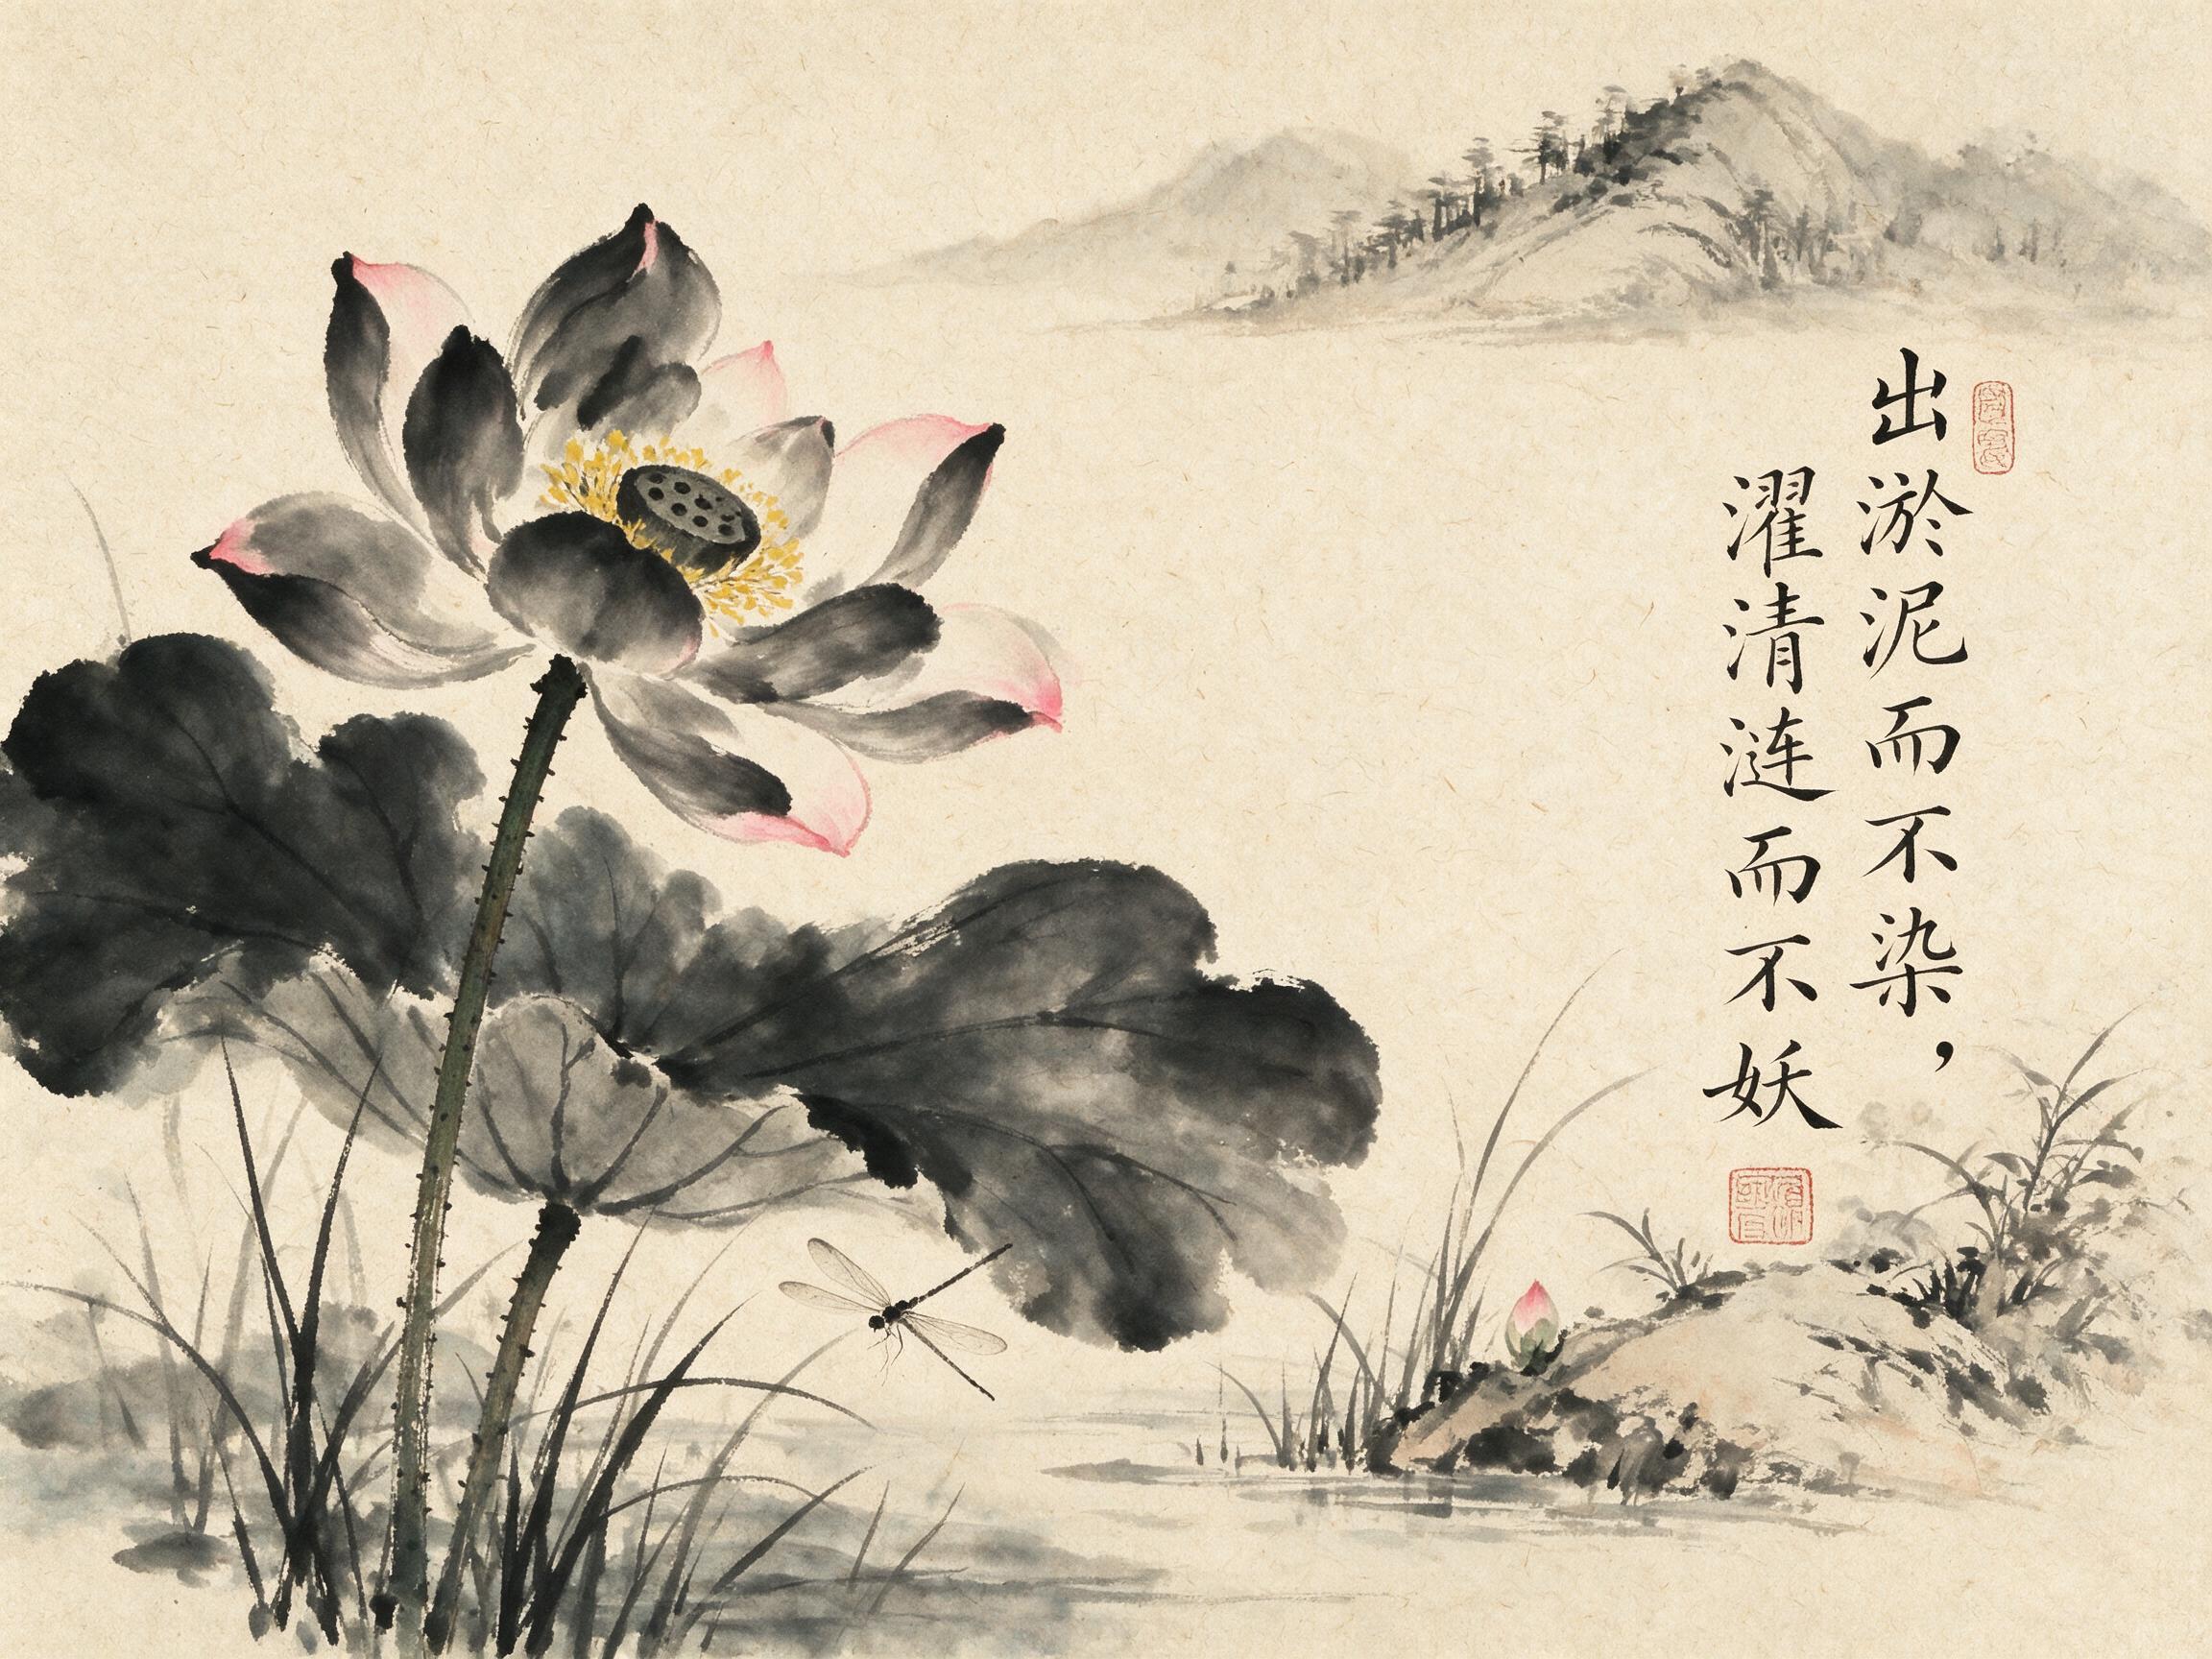 出淤泥而不染，
濯清涟而不妖